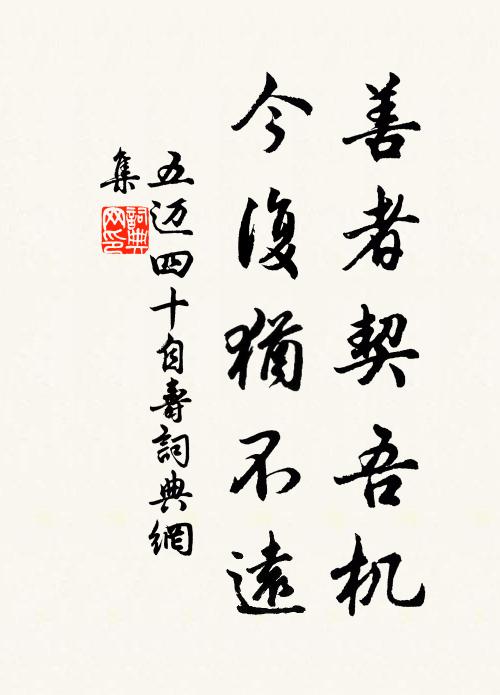 善者契吾机
今復猶不遠
五迈四十自壽詞典網
集
詞典
网印